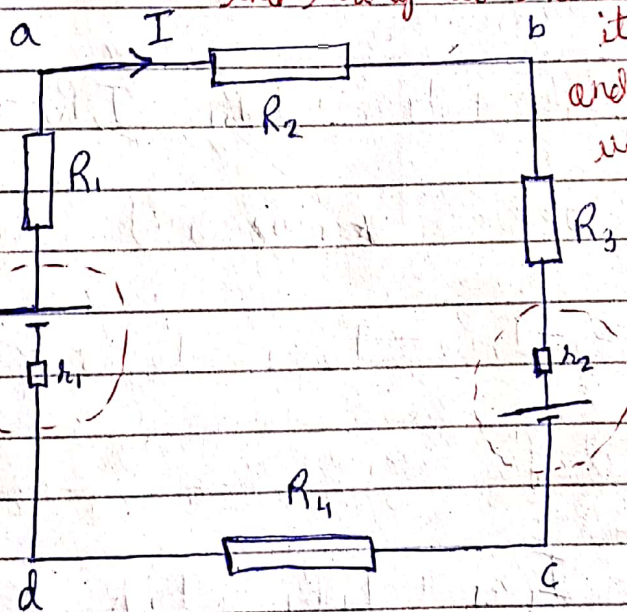 a I b it
and
R2
R1
R3
r1
r2
R4
d c